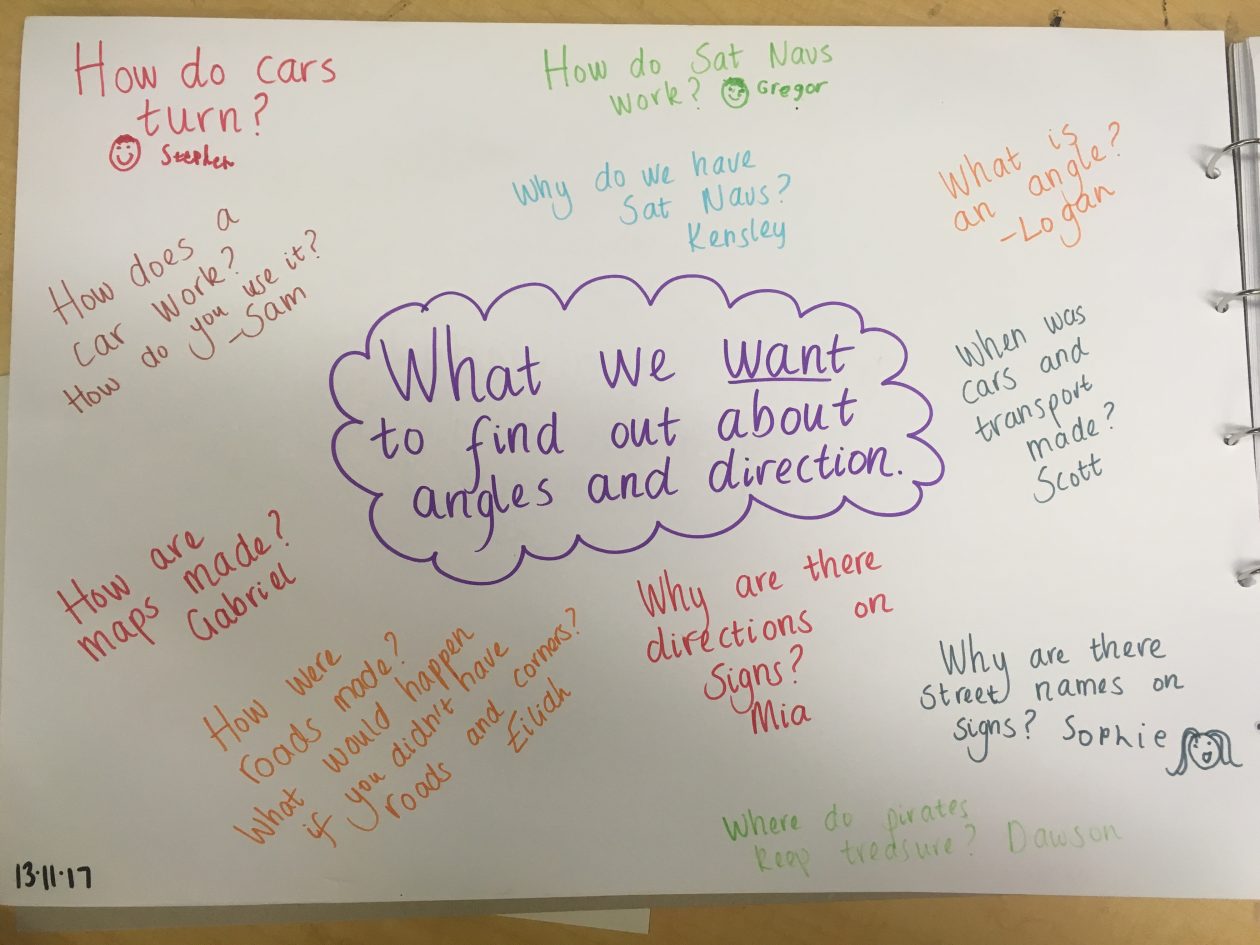 How do cars
turn?
Stephen
How do Sat Navs
work? Gregor
Why do we have
Sat Navs?
Kensley
What is
an angle?
-Logan
How does a
car work?
How do you use it?
-Sam
What we want
to find out about
angles and direction.
When was
cars and
transport
made?
Scott
How are
maps made?
Gabriel
How were
roads made?
What would happen
if you didn't have
roads and corners?
Eilidh
Why are there
directions on
signs?
Mia
Why are there
street names on
signs? Sophie
Where do pirates
keep treasure? Dawson
13.11.17